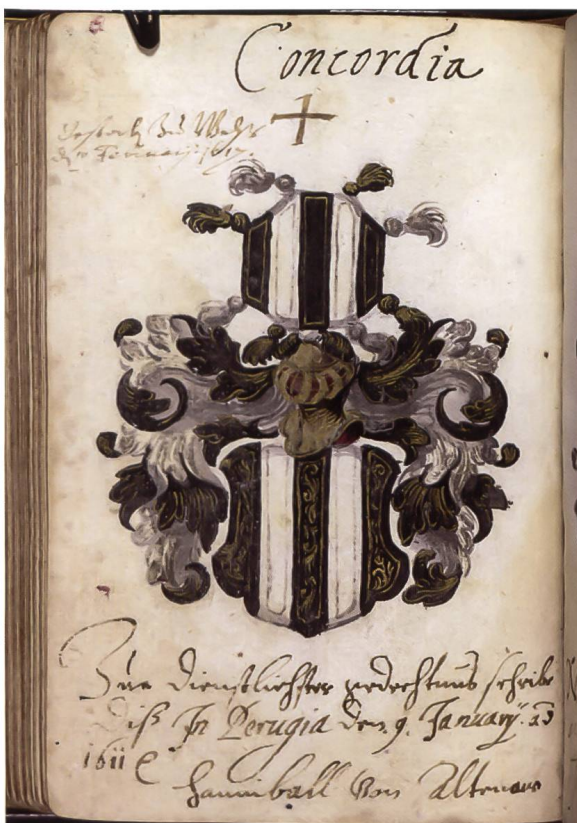 Concordia
den Januarij
Zue dienstlichster gedechtnus schreib
diß In Perugia den 9. January.
1611
Hanniball Von Altenaw